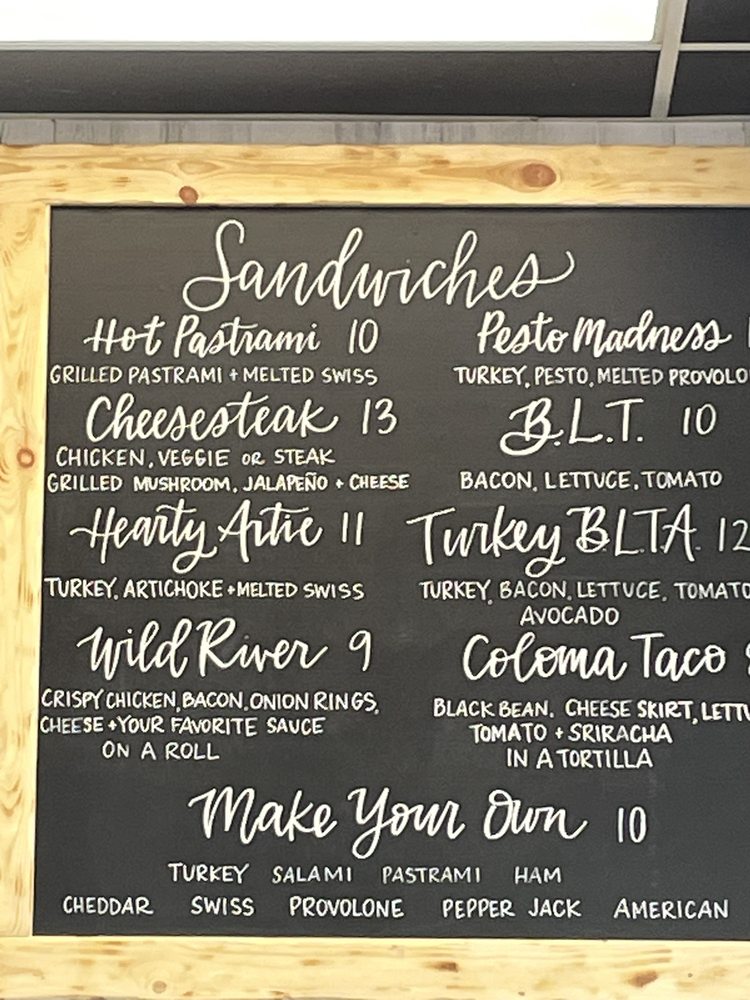 Sandwiches
Hot Pastrami 10
GRILLED PASTRAMI + MELTED SWISS
Cheesesteak 13
CHICKEN, VEGGIE OR STEAK
GRILLED MUSHROOM, JALAPEÑO + CHEESE
Hearty Artie 11
TURKEY, ARTICHOKE + MELTED SWISS
Wild River 9
CRISPY CHICKEN, BACON, ONION RINGS,
CHEESE + YOUR FAVORITE SAUCE
ON A ROLL
Pesto Madness
TURKEY, PESTO, MELTED PROVOLO
B.L.T. 10
BACON, LETTUCE, TOMATO
Turkey B.L.T.A. 12
TURKEY, BACON, LETTUCE, TOMATO
AVOCADO
Coloma Taco
BLACK BEAN, CHEESE SKIRT, LETTU
TOMATO + SRIRACHA
IN A TORTILLA
Make Your Own 10
TURKEY SALAMI PASTRAMI HAM
CHEDDAR SWISS PROVOLONE PEPPER JACK AMERICAN